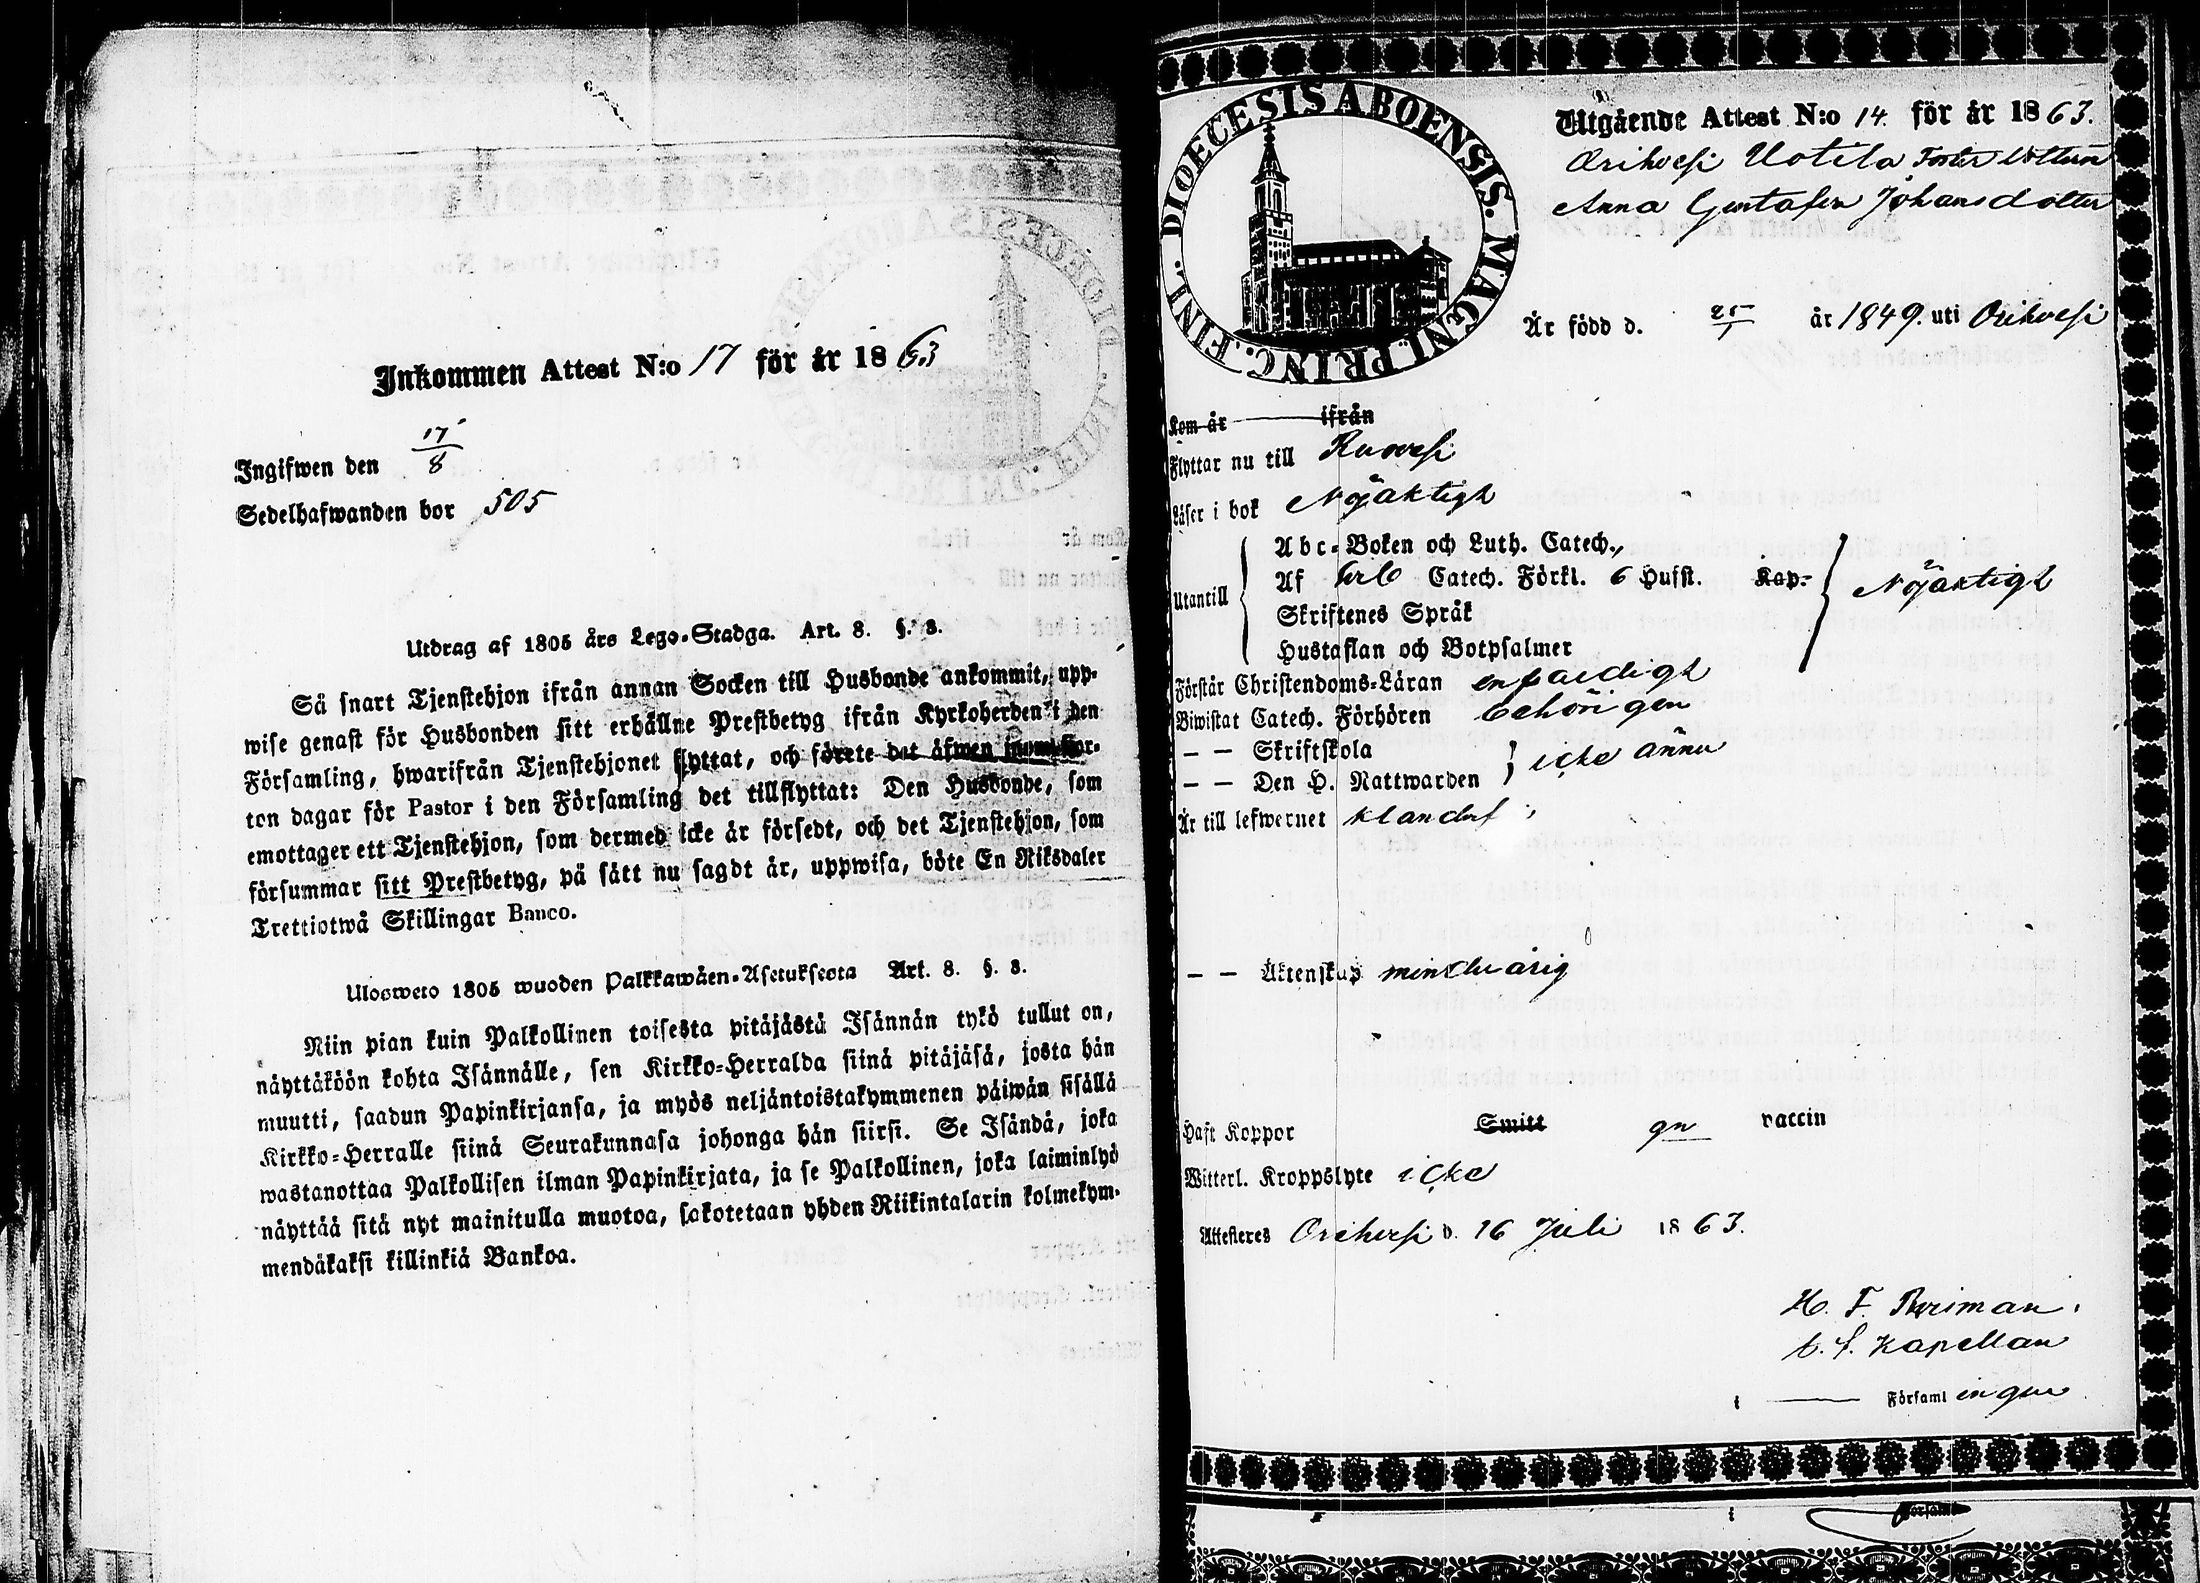 Inkommen Attest N:o 17 för år 1863
Ingifwen den 17/8
Sedelhafwanden bor 505
Utdrag af 1805 års Lego-Stadga. Art. 8. §. 8.
Så snart Tjenstehjon ifrån annan Socken till Husbonde ankommit, upp-
wise genast för Husbonden sitt erhållne Prestbetyg ifrån Kyrkoherden i den
Församling, hwarifrån Tjenstehjonet flyttat, och förete det äfwen inom fjor-
ton dagar för Pastor i den Församling det tillflyttat: Den Husbonde, som
emottager ett Tjenstehjon, som dermed icke är försedt, och det Tjenstehjon, som
försummar sitt Prestbetyg, på sätt nu sagdt är, uppwisa, böte En Riksdaler
Trettiotwå Skillingar Banco.
Ulosweto 1805 wuoden Palkkawäen-Asetuksesta Art. 8. §. 8.
Niin pian kuin Palkollinen toisesta pitäjästä Isännän tykö tullut on,
näyttäköön kohta Isännälle, sen Kirkko-Herralda siinä pitäjäsä, josta hän
muutti, saadun Papinkirjansa, ja myös neljäntoistakymmenen päiwän sisällä
Kirkko-Herralle siinä Seurakunnasa johonga hän siirsi. Se Isändä, joka
wastanottaa Palkollisen ilman Papinkirjata, ja se Palkollinen, joka laiminlyö
näyttää sitä nyt mainitulla muotoa, sakotetaan yhden Riikintalarin kolmekym-
mendäkaksi killinkiä Bankoa.
DIOECESIS ABOENSIS. MAGNI PRINC. FINL.
Utgående Attest N:o 14. för år 1863.
Orihvesi Uotila Foster dottern
Anna Gustafva Johansdotter
Är född d. 25/1 år 1849. uti Orihvesi
Kom år ifrån
Flyttar nu till Ruovesi
Läser i bok Nöjaktigt
Utantill
Abc-Boken och Luth. Catech.,
Af Catech. Förkl. 6 Hufst. Kap. Nöjaktigt
Skriftenes Språk
Hustaflan och Botpsalmer
Förstår Christendoms-Läran enfaldigt
Biwistat Catech. Förhören behörigen
— — Skriftskola
— — Den H. Nattwarden } icke ännu
Är till lefwernet klanderf:
— — Äktenskap minderårig
Haft Koppor Smitt gn vaccin
Witterl. Kroppslyte icke
Attesteres Orihvesi d. 16 Juli 1863.
H. F.
t. f. Kapellan
i — Församl ingen
Församl